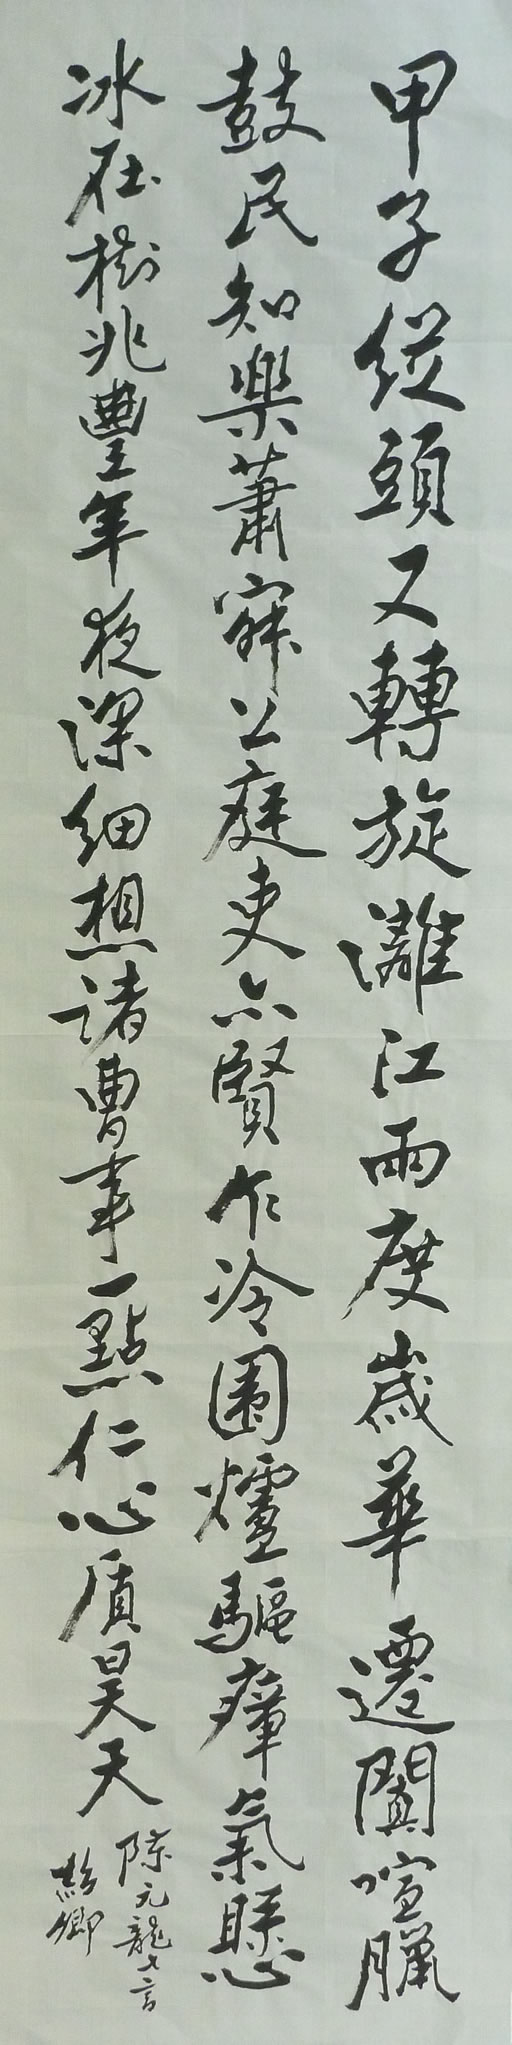 甲子從頭又轉旋灕江兩度歲華遷闐喧臘
鼓民知樂蕭寂公庭吏亦賢作冷圍爐驅瘴氣懸
冰在樹兆豐年夜深細想諸曹事一點仁心質昊天
陳元龍七言
卿